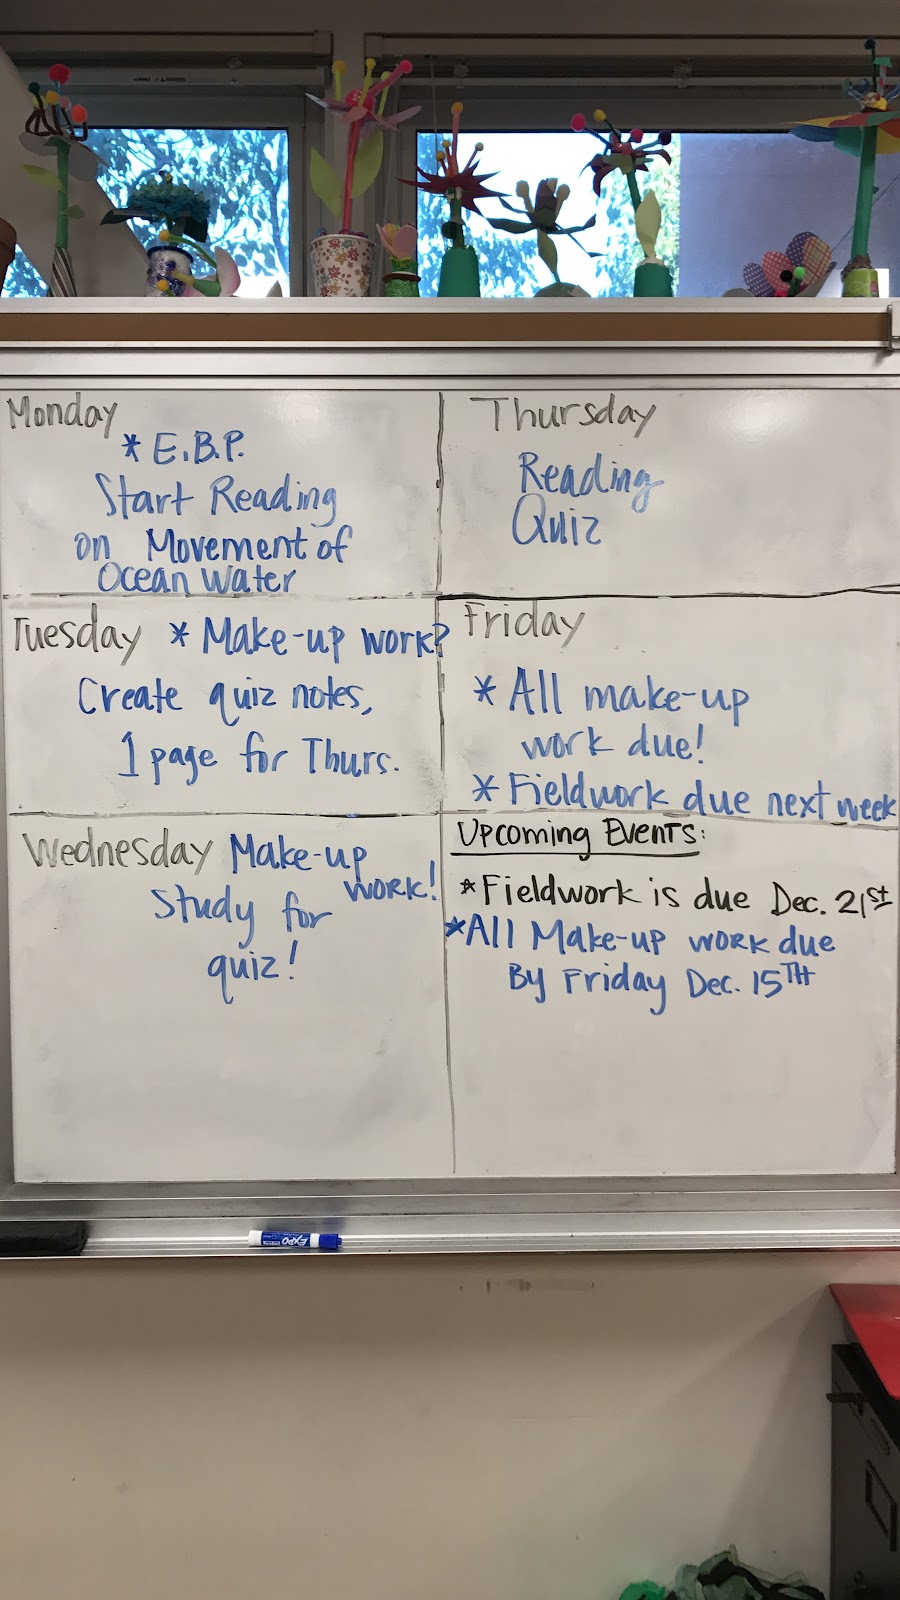 Monday
* E.B.P.
Start Reading
on Movement of
Ocean Water
Tuesday * Make-up work?
Create quiz notes,
1 page for Thurs.
Wednesday Make-up
work!
Study for
quiz!
Thursday
Reading
Quiz
Friday
* All make-up
work due!
* Fieldwork due next week
Upcoming Events:
* Fieldwork is due Dec. 21st
* All Make-up work due
By Friday Dec. 15TH
EXPO